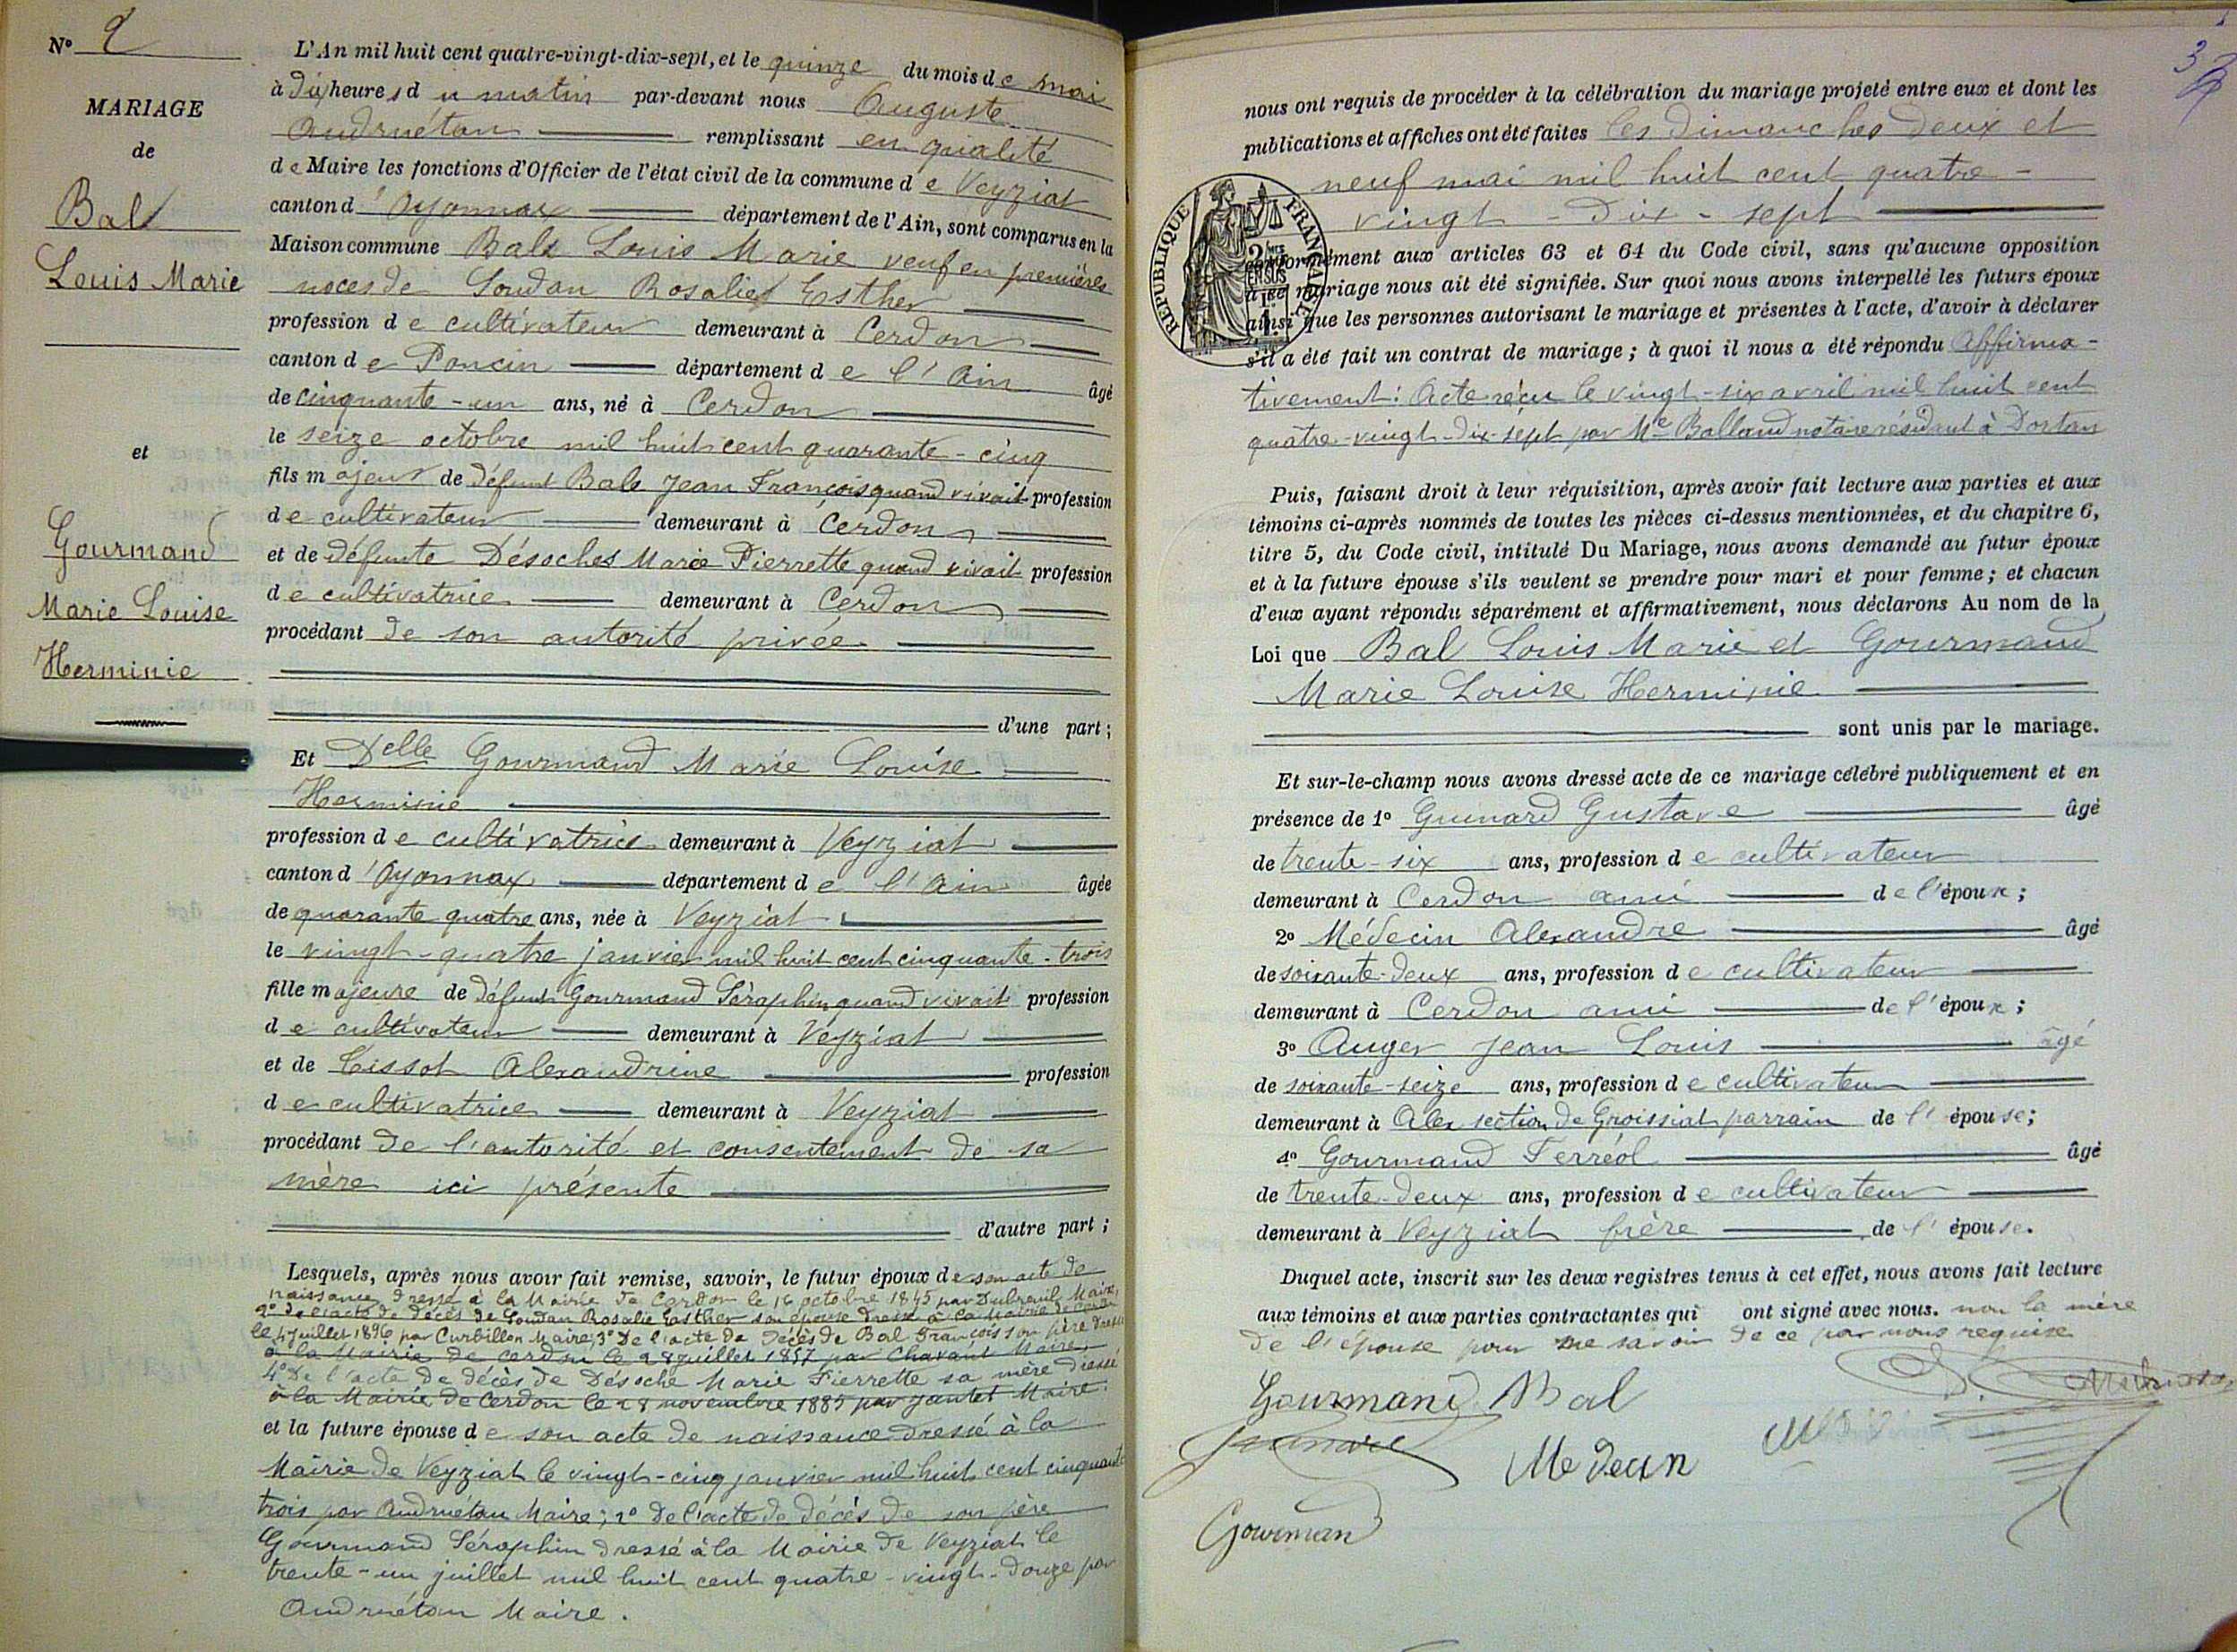 N° 2
MARIAGE
de
Bal
Louis Marie
et
Gourmand
Marie Louise
Herminie
L'An mil huit cent quatre-vingt-dix-sept, et le quinze du mois de mai
à dix heures du matin par-devant nous Auguste
Andruétan remplissant en qualité
de Maire les fonctions d'Officier de l'état civil de la commune de Veyziat
canton d'Oyonnax département de l'Ain, sont comparus en la
Maison commune Bal Louis Marie veuf en premières
noces de Goudan Rosalie Esther
profession de cultivateur demeurant à Cerdon
canton de Poncin département de l'Ain âgé
de cinquante-un ans, né à Cerdon
le seize octobre mil huit cent quarante-cinq
fils majeur de défunt Bal Jean François quand vivait profession
de cultivateur demeurant à Cerdon
et de défunte Désoches Marie Pierrette quand vivait profession
de cultivatrice demeurant à Cerdon
procédant de son autorité privée
d'une part;
Et Delle Gourmand Marie Louise
Herminie
profession de cultivatrice demeurant à Veyziat
canton d'Oyonnax département de l'Ain âgée
de quarante quatre ans, née à Veyziat
le vingt-quatre janvier mil huit cent cinquante-trois
fille majeure de défunt Gourmand Séraphin quand vivait profession
de cultivateur demeurant à Veyziat
et de Tissot Alexandrine profession
de cultivatrice demeurant à Veyziat
procédant de l'autorité et consentement de sa
mère ici présente
d'autre part;
Lesquels, après nous avoir fait remise, savoir, le futur époux de son acte de
naissance dressé à la Mairie de Cerdon le 16 octobre 1845 par Dubreuil Maire,
2° de l'acte de décès de Goudan Rosalie Esther son épouse dressé à la Mairie de Cerdon
le 4 juillet 1896 par Curbillon Maire; 3° De l'acte de décès de Bal François son père dressé
à la Mairie de Cerdon le 28 juillet 1857 par Chavant Maire,
4° De l'acte de décès de Désoche Marie Pierrette sa mère dressé
à la Mairie de Cerdon le 28 novembre 1885 par Jantet Maire.
et la future épouse de son acte de naissance dressé à la
Mairie de Veyziat le vingt-cinq janvier mil huit cent cinquante
trois par Andruétan Maire; 2° De l'acte de décès de son père
Gourmand Séraphin dressé à la Mairie de Veyziat le
trente-un juillet mil huit cent quatre-vingt-douze par
Andruétan Maire.
nous ont requis de procéder à la célébration du mariage projeté entre eux et dont les
publications et affiches ont été faites les dimanches deux et
neuf mai mil huit cent quatre-
vingt-dix-sept
REPUBLIQUE FRANCAISE
conformément aux articles 63 et 64 du Code civil, sans qu'aucune opposition
à ce mariage nous ait été signifiée. Sur quoi nous avons interpellé les futurs époux
ainsi que les personnes autorisant le mariage et présentes à l'acte, d'avoir à déclarer
s'il a été fait un contrat de mariage; à quoi il nous a été répondu Affirma-
tivement: Acte reçu le vingt-six avril mil huit cent
quatre-vingt-dix-sept par Me Balland notaire résidant à Dortan
Puis, faisant droit à leur réquisition, après avoir fait lecture aux parties et aux
témoins ci-après nommés de toutes les pièces ci-dessus mentionnées, et du chapitre 6,
titre 5, du Code civil, intitulé Du Mariage, nous avons demandé au futur époux
et à la future épouse s'ils veulent se prendre pour mari et pour femme; et chacun
d'eux ayant répondu séparément et affirmativement, nous déclarons Au nom de la
Loi que Bal Louis Marie et Gourmand
Marie Louise Herminie
sont unis par le mariage.
Et sur-le-champ nous avons dressé acte de ce mariage célébré publiquement et en
présence de 1° Guinard Gustave âgé
de trente-six ans, profession de cultivateur
demeurant à Cerdon ami de l'époux;
2° Médecin Alexandre âgé
de soixante-deux ans, profession de cultivateur
demeurant à Cerdon ami de l'époux;
3° Auger Jean Louis âgé
de soixante-seize ans, profession de cultivateur
demeurant à Alex section de Groissiat parrain de l'épouse;
4° Gourmand Ferréol âgé
de trente-deux ans, profession de cultivateur
demeurant à Veyziat frère de l'épouse.
Duquel acte, inscrit sur les deux registres tenus à cet effet, nous avons fait lecture
aux témoins et aux parties contractantes qui ont signé avec nous. non la mère
de l'épouse pour ne savoir de ce par nous requise
Gourmand Bal
Medecin
Gourmand